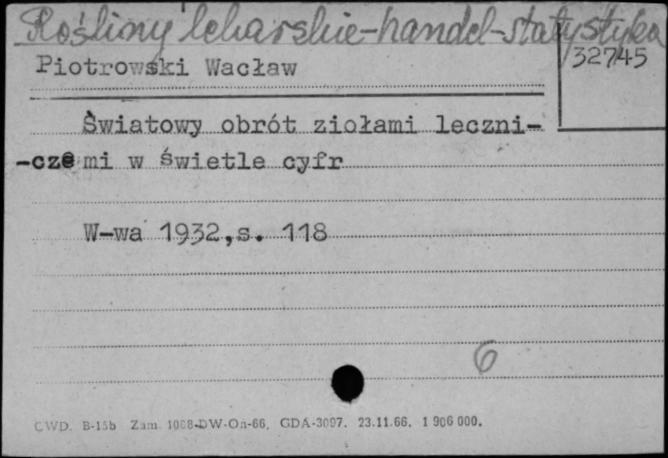 Rośliny lekarskie-handel-statystyka
32745
Piotrowski Wacław
Światowy obrót ziołami leczni-
-czemi w świetle cyfr
W-wa 1932,s. 118
6
CWD. B-15b Zam. 1068-DW-On-66. GDA-3097. 23.11.66. 1 906 000.